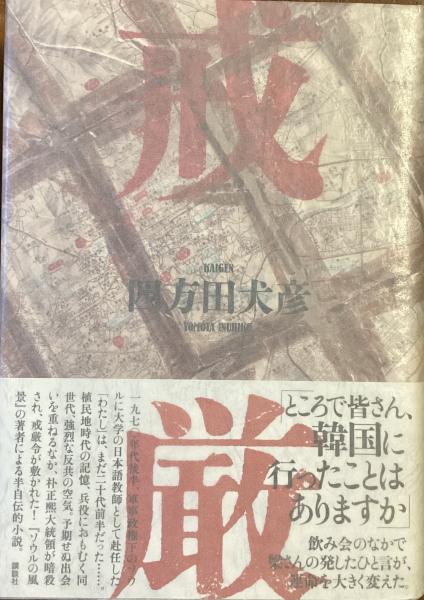 戒
KAIGEN
四方田犬彦
YOMOTA INUHIKO
厳
「ところで皆さん、
韓国に
行ったことは
ありますか」
飲み会のなかで
梁さんの発したひと言が、
運命を大きく変えた。
一九七〇年代後半、軍事政権下のソウ
ルに大学の日本語教師として赴任した
「わたし」は、まだ二十代前半だった……。
植民地時代の記憶、兵役におもむく同
世代、強烈な反共の空気。予期せぬ出会
いを重ねるなか、朴正熙大統領が暗殺
され、戒厳令が敷かれた！『ソウルの風
景』の著者による半自伝的小説。
講談社